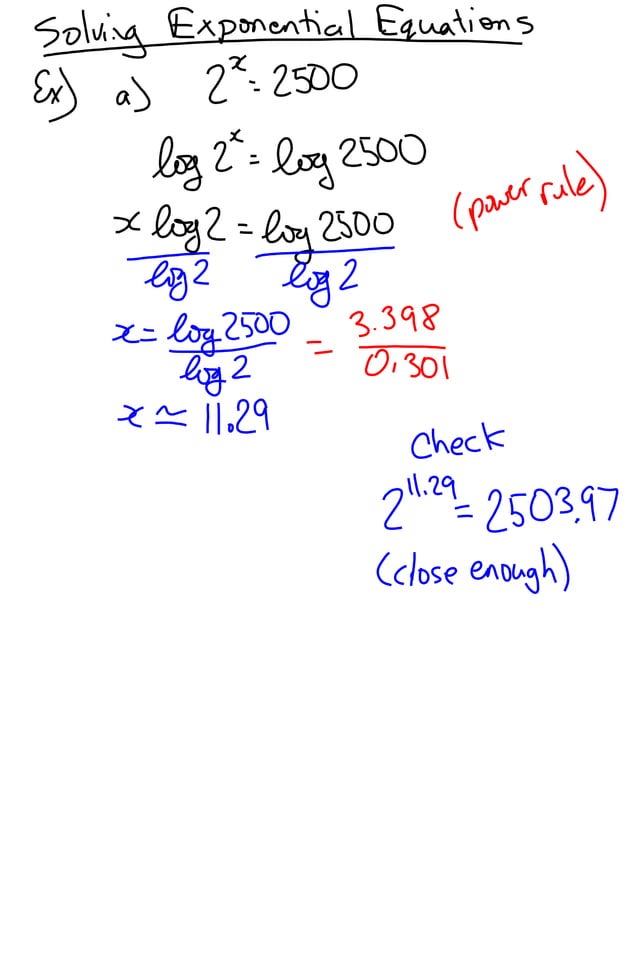 Solving Exponential Equations
Ex) a) 2^x = 2500
log 2^x = log 2500
(power rule)
x log 2 = log 2500
log 2 log 2
x = log 2500 / log 2 = 3.398 / 0.301
x ≃ 11.29
Check
2^11.29 = 2503.97
(close enough)